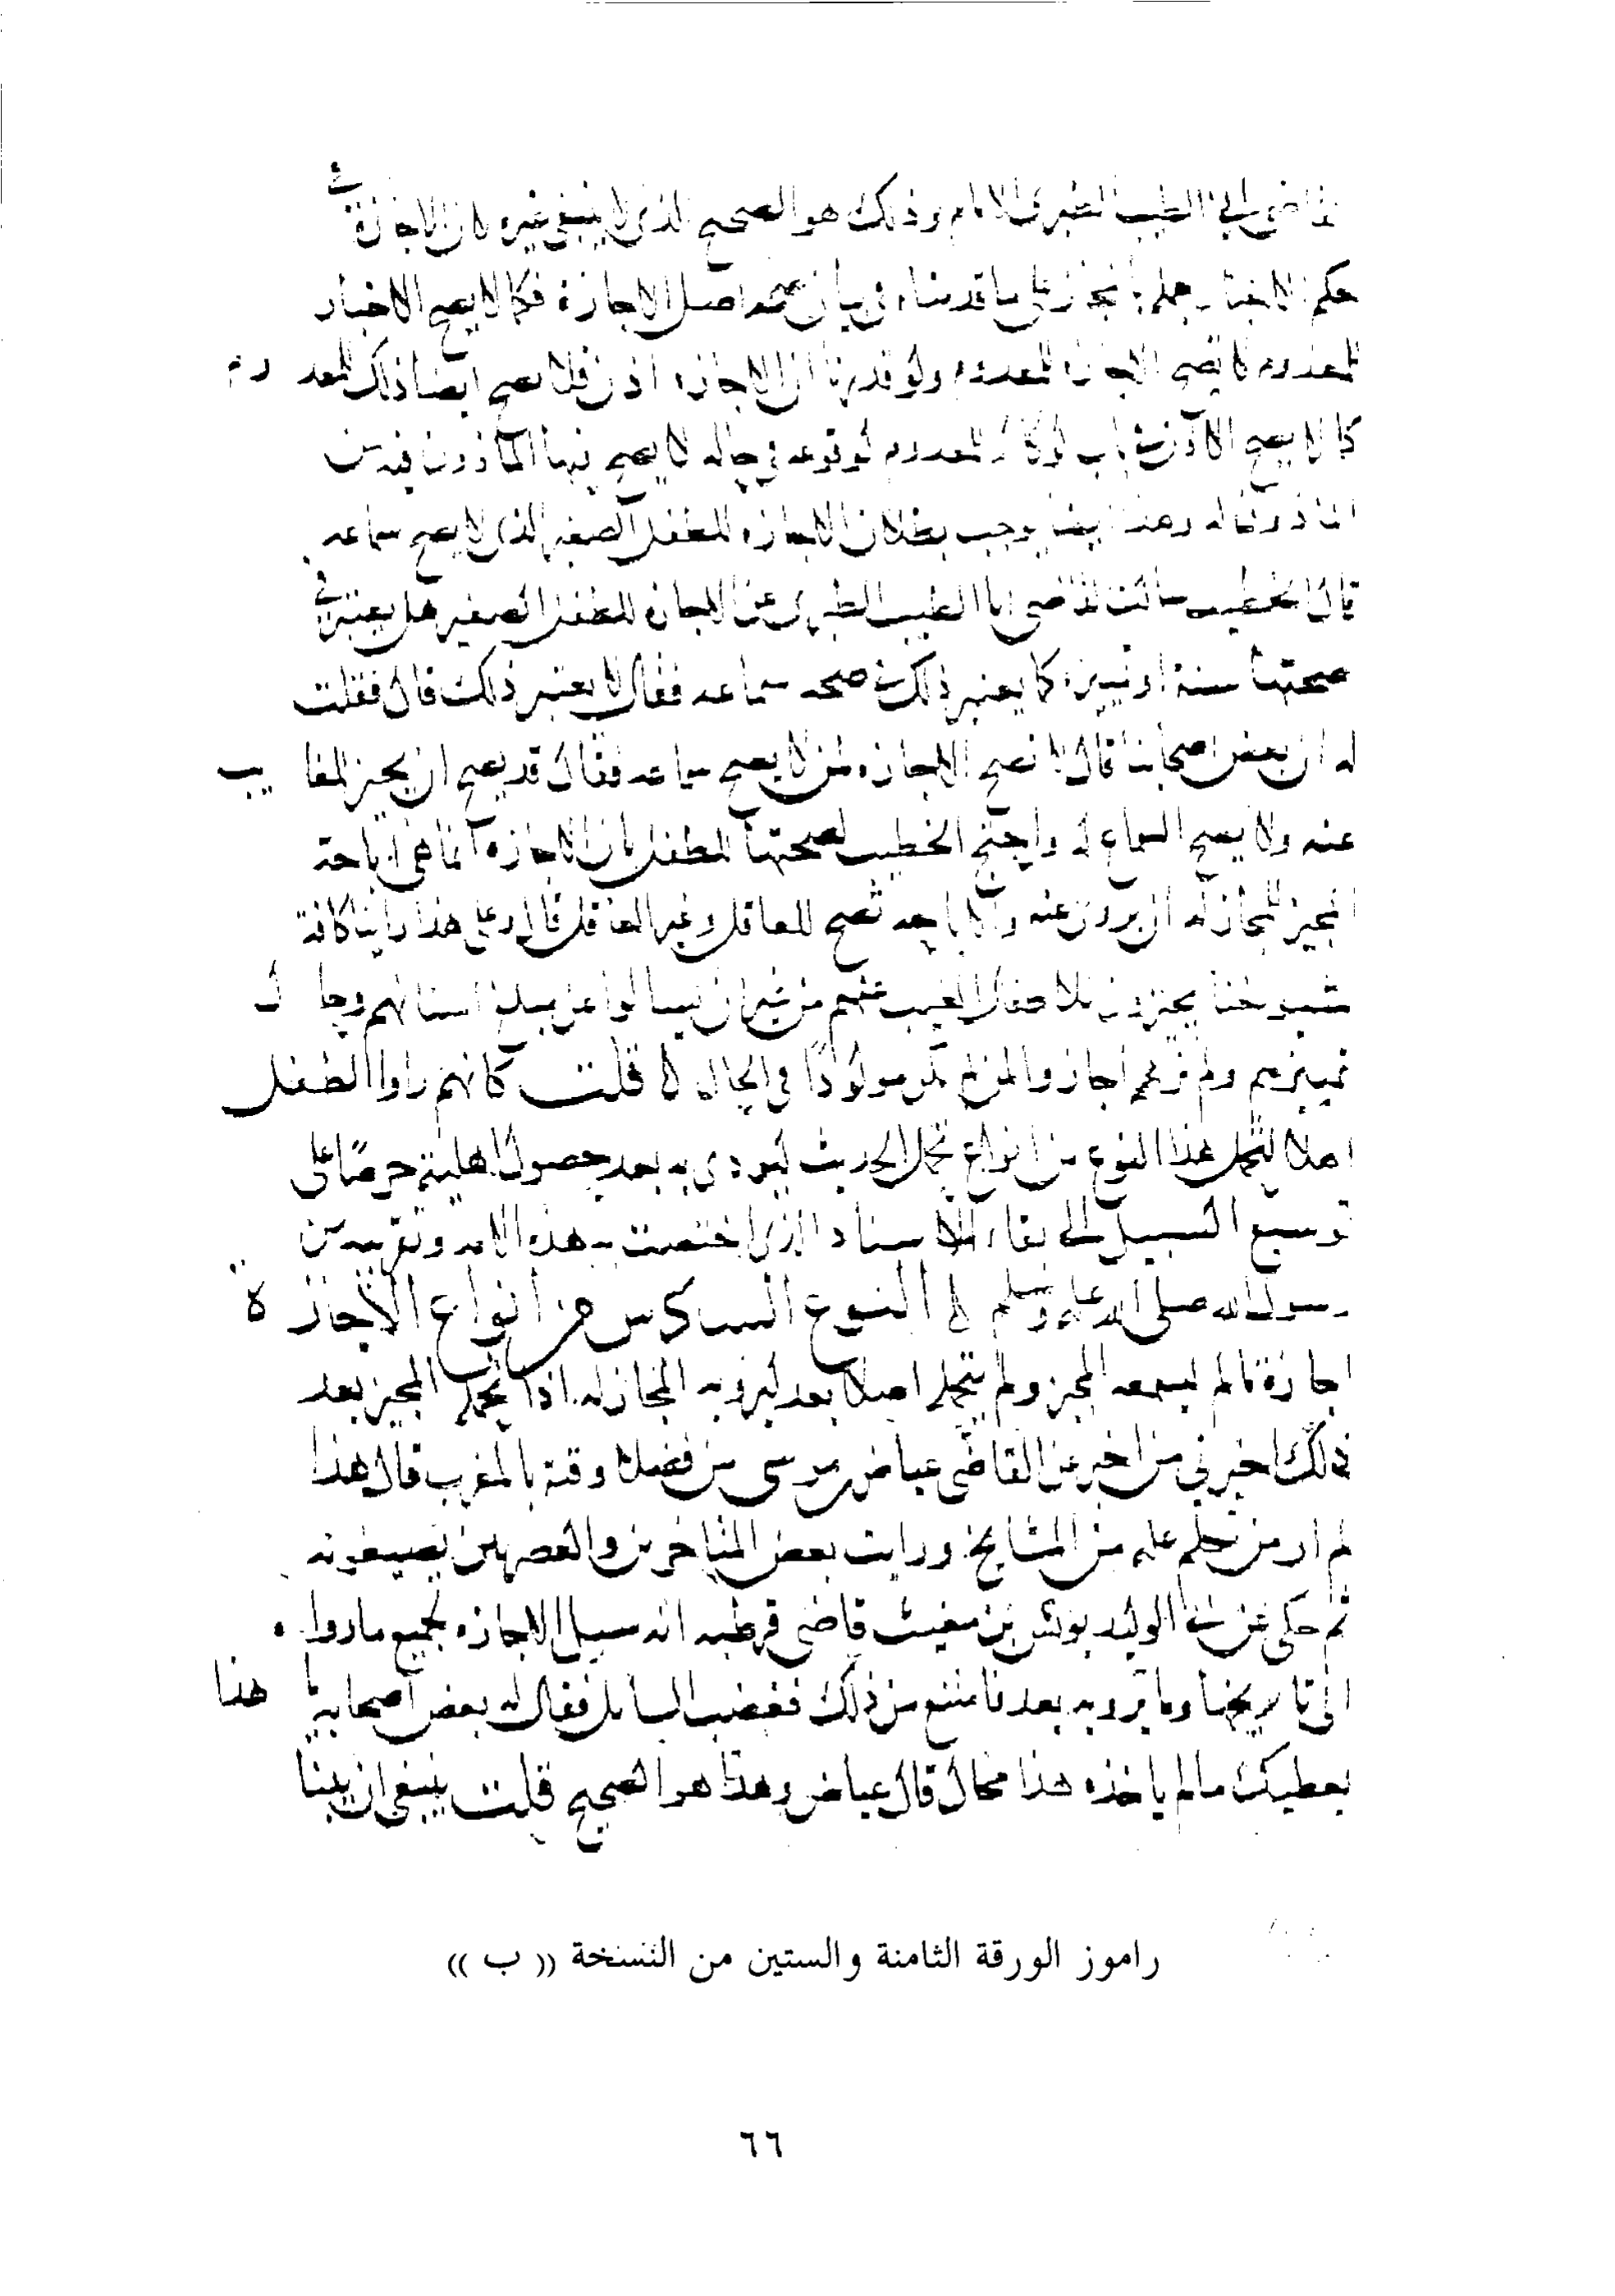 القاضى ابى الطيب الطبرى الامام وذلك هو الصحيح الذى لا ينبغى غيره لان الاجازة فى
حكم الاخبار جملة بالمجاز على ما قدمناه فى بيان صحة اصل الاجازة فكما لا يصح الاخبار
للمعدوم لا تصح الاجازة للمعدوم ولو قدرنا ان الاجازة اذن فلا يصح ايضا ذلك للمعدوم
كما لا يصح الاذن فى باب الوكالة للمعدوم لوقوعه فى حالة لا يصح فيها الماذون فيه من
الماذون له وهذا ايضا يوجب بطلان الاجازة للطفل الصغير الذى لا يصح سماعه
قال الخطيب سالت القاضى ابا الطيب الطبرى عن الاجازة للطفل الصغير هل يعتبر فى
صحتها سنه او تمييزه كما يعتبر ذلك فى صحة سماعه فقال لا يعتبر ذلك قال فقلت
له ان بعض اصحابنا قال لا تصح الاجازة لمن لا يصح سماعه فقال قد يصح ان يجيز للغايب
عنه ولا يصح السماع له واحتج الخطيب لصحتها للطفل بان الاجازة انما هى اباحة
المجيز للمجاز له ان يروى عنه والاباحة تصح للعاقل وغير العاقل قال وعلى هذا راينا كافة
شيوخنا يجيزون للاطفال الغيب عنهم من غير ان يسالوا عن مبلغ اسنانهم وحال
تمييزهم ولم نرهم اجازوا لمن لم يكن مولودا فى الحال قلت كانهم راوا الطفل
اهلا لتحمل هذا النوع من انواع تحمل الحديث ليودى به بعد حصول اهليته حرصا على
توسيع السبيل الى بقاء الاسناد الذى اختصت به هذه الامة وتقريبه من
رسول الله صلى الله عليه وسلم النوع السادس من انواع الاجازة
اجازة ما لم يسمعه المجيز ولم يتحمله اصلا بعد ليرويه المجاز له اذا تحمله المجيز بعد
ذلك اخبرنى من اخبر عن القاضى عياض بن موسى من فضلا وقته بالمغرب قال هذا
لم ار من تكلم عليه من المشايخ ورايت بعض المتاخرين والعصريين يصنعونه
ثم حكى عن ابى الوليد يونس بن مغيث قاضى قرطبة انه سيل الاجازة بجميع ما رواه
الى تاريخها وما يرويه بعد فامتنع من ذلك فغضب السايل فقال له بعض اصحابه يا هذا
يعطيك ما لم ياخذه هذا محال قال عياض وهذا هو الصحيح قلت ينبغى ان يبنا
راموز الورقة الثامنة والستين من النسخة (( ب ))
٦٦